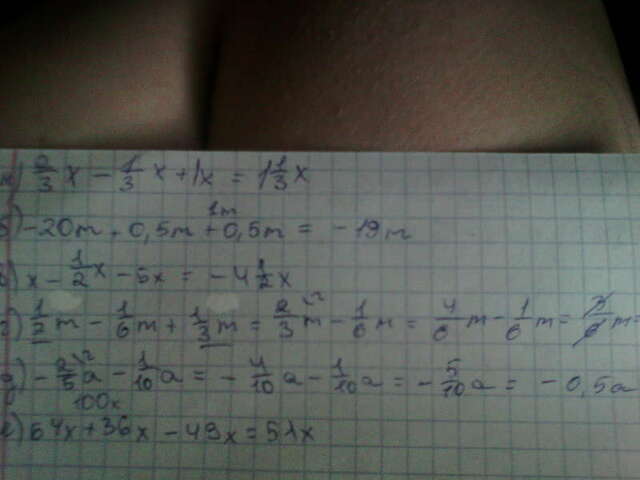 а) 2/3 x - 1/3 x + 1x = 1 1/3 x
1m
б) -20m + 0,5m + 0,5m = -19m
в) x - 1/2 x - 5x = -4 1/2 x
г) 1/2 m - 1/6 m + 1/3 m = 2/3 m - 1/6 m = 4/6 m - 1/6 m = 3/6 m =
д) - 2/5 a - 1/10 a = - 4/10 a - 1/10 a = - 5/10 a = - 0,5a
100x
е) 64x + 36x - 49x = 51x